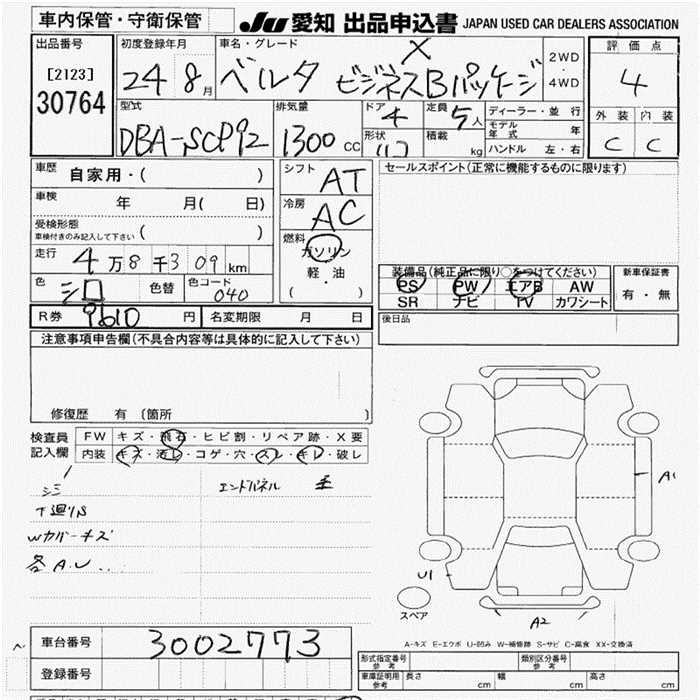 車内保管・守衛保管
JU 愛知 出品申込書 JAPAN USED CAR DEALERS ASSOCIATION
出品番号
[2123]
30764
初度登録年月
24 8月
車名・グレード
X
ベルタ ビジネスBパッケージ
2WD
4WD
評価点
4
外装 内装
C C
型式
DBA-SCP92
排気量
1300 CC
ドア
4
形状
定員
5人
積載
kg
ディーラー・並行
モデル年式 年
ハンドル 左・右
車歴
自家用・( )
車検
年 月( 日)
受検形態
車検付きのみ記入して下さい ( )
走行
4万8千309km
色
シロ
色替
色コード
040
シフト
AT
冷房
AC
燃料
ガソリン
軽・油
( ・ )
セールスポイント(正常に機能するものに限ります)
装備品(純正品に限り○をつけてください)
PS PW エアB AW
SR ナビ TV カワシート
新車保証書
有・無
R券 9610円
名変期限 月 日
後日品
注意事項申告欄(不具合内容等は具体的に記入して下さい)
修復歴 有 〔箇所 〕
検査員
記入欄
FW キズ・飛石・ヒビ割・リペア跡・X要
内装 キズ・汚レ・コゲ・穴・スレ・キレ・破レ
シミ
下廻りS
Wカバーキズ
各A.U..
エンドパネル
A1
U1
A2
スペア
A-キズ E-エクボ U-凹み W-補修跡 S-サビ C-腐食 XX-交換済
車台番号
3002773
登録番号
形式指定番号
参考
類別区分番号
参考
車庫証明用
参考
長さ cm 幅 cm 高さ cm